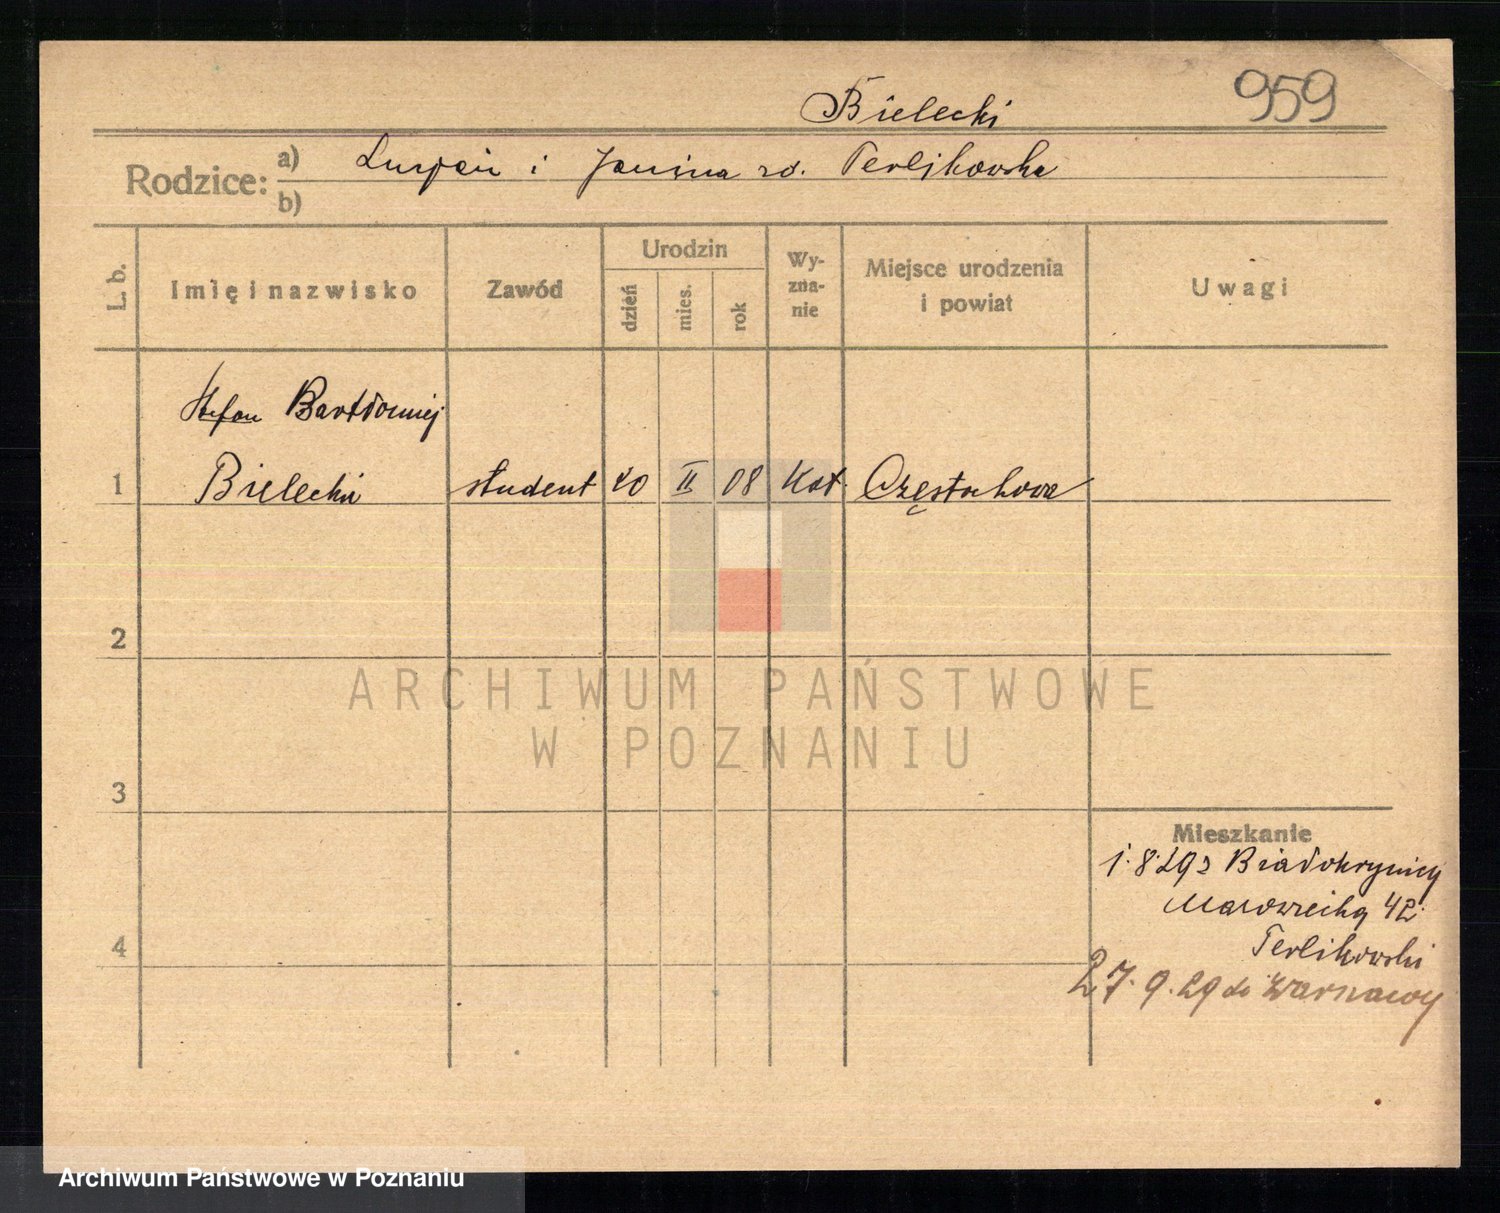 Bielecki
959
Rodzice: a) Lucjan i Janina zd. Terlikowska
b)
L b.
Imię i nazwisko
Zawód
Urodzin
dzień
mies.
rok
Wy-
zna-
nie
Miejsce urodzenia
i powiat
Uwagi
Stefan Bartłomiej
1 Bielecki student 20 II 08 Kat. Częstochowa
2
ARCHIWUM PAŃSTWOWE
W POZNANIU
3
Mieszkanie
1.8.29 z Białokrynicy
Mazowiecka 42
4
Terlikowski
27.9.29 do Warszawy
Archiwum Państwowe w Poznaniu